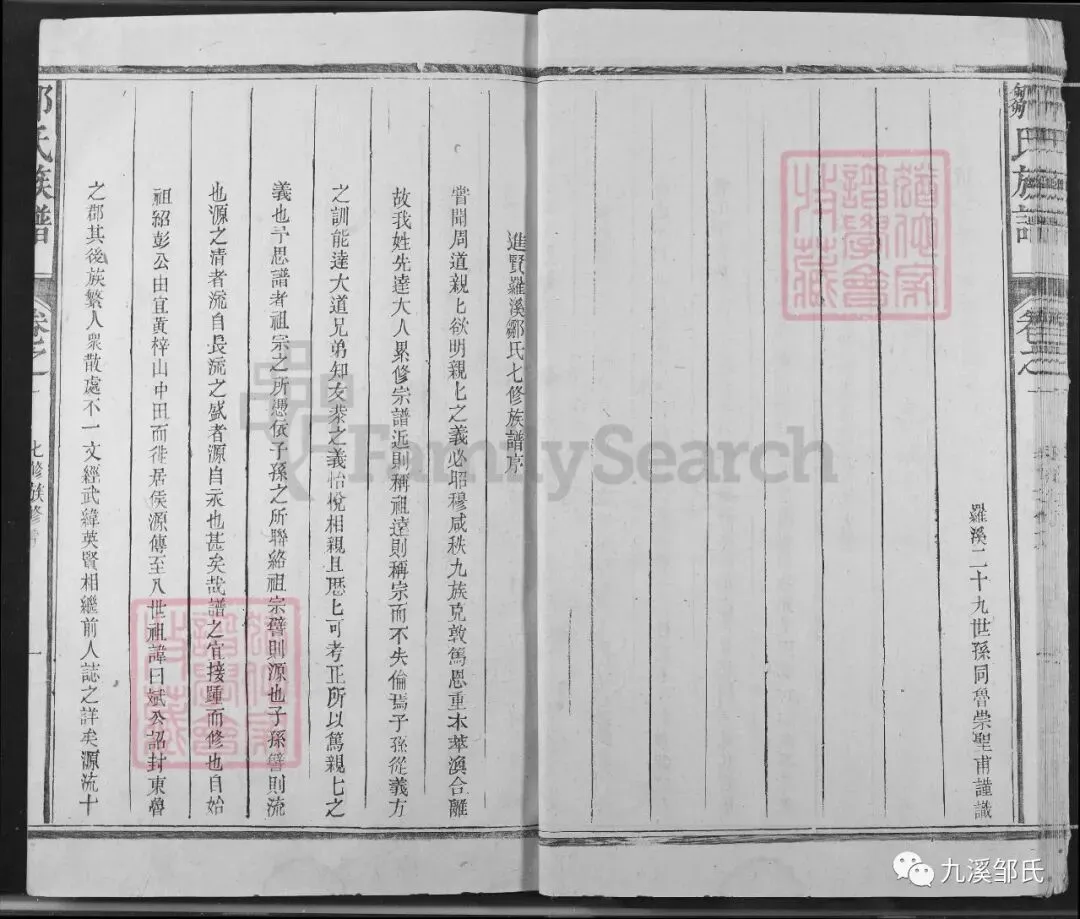 鄒氏族譜
卷之一
羅溪二十九世孫同魯崇聖甫謹識
進賢羅溪鄒氏七修族譜序
嘗聞周道親上欲明親匕之義必昭穆咸秩九族克敦篤恩重本萃渙合離
故我姓先達大人累修宗譜近則稱祖遠則稱宗而不失倫焉子孫從義方
之訓能達大道兄弟知友恭之義怡悅相親且歷匕可考正所以篤親匕之
義也予思譜者祖宗之所憑依子孫之所聯絡祖宗譬則源也子孫譬則流
也源之清者流自長流之盛者源自永也甚矣哉譜之宜接踵而修也自始
祖紹彭公由宜黃梓山中田而徙居侯源傳至八世祖諱曰斌公詔封東魯
之郡其後族繁人衆散處不一文經武緯英賢相繼前人誌之詳矣源流十
鄒氏族譜
卷之一
七修族修
一
FamilySearch
九溪邹氏